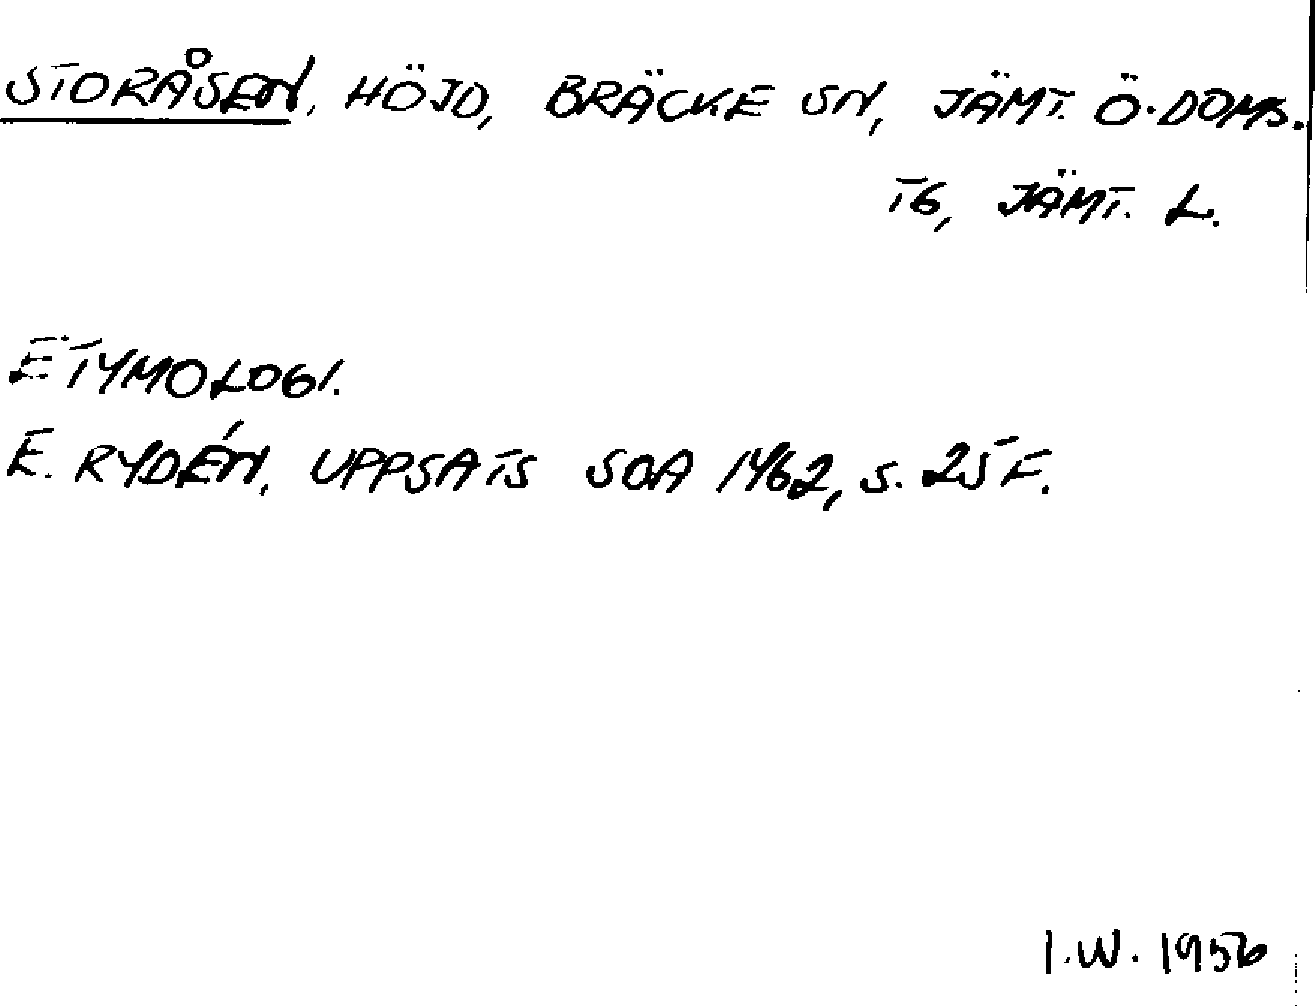 STORÅSEN, HÖJD, BRÄCKE SN, JÄMT. Ö. DOMS.
TG, JÄMT. L.
ETYMOLOGI.
E. RYDÉN, UPPSATS SOA 1462, S. 25 F.
I.W. 1956